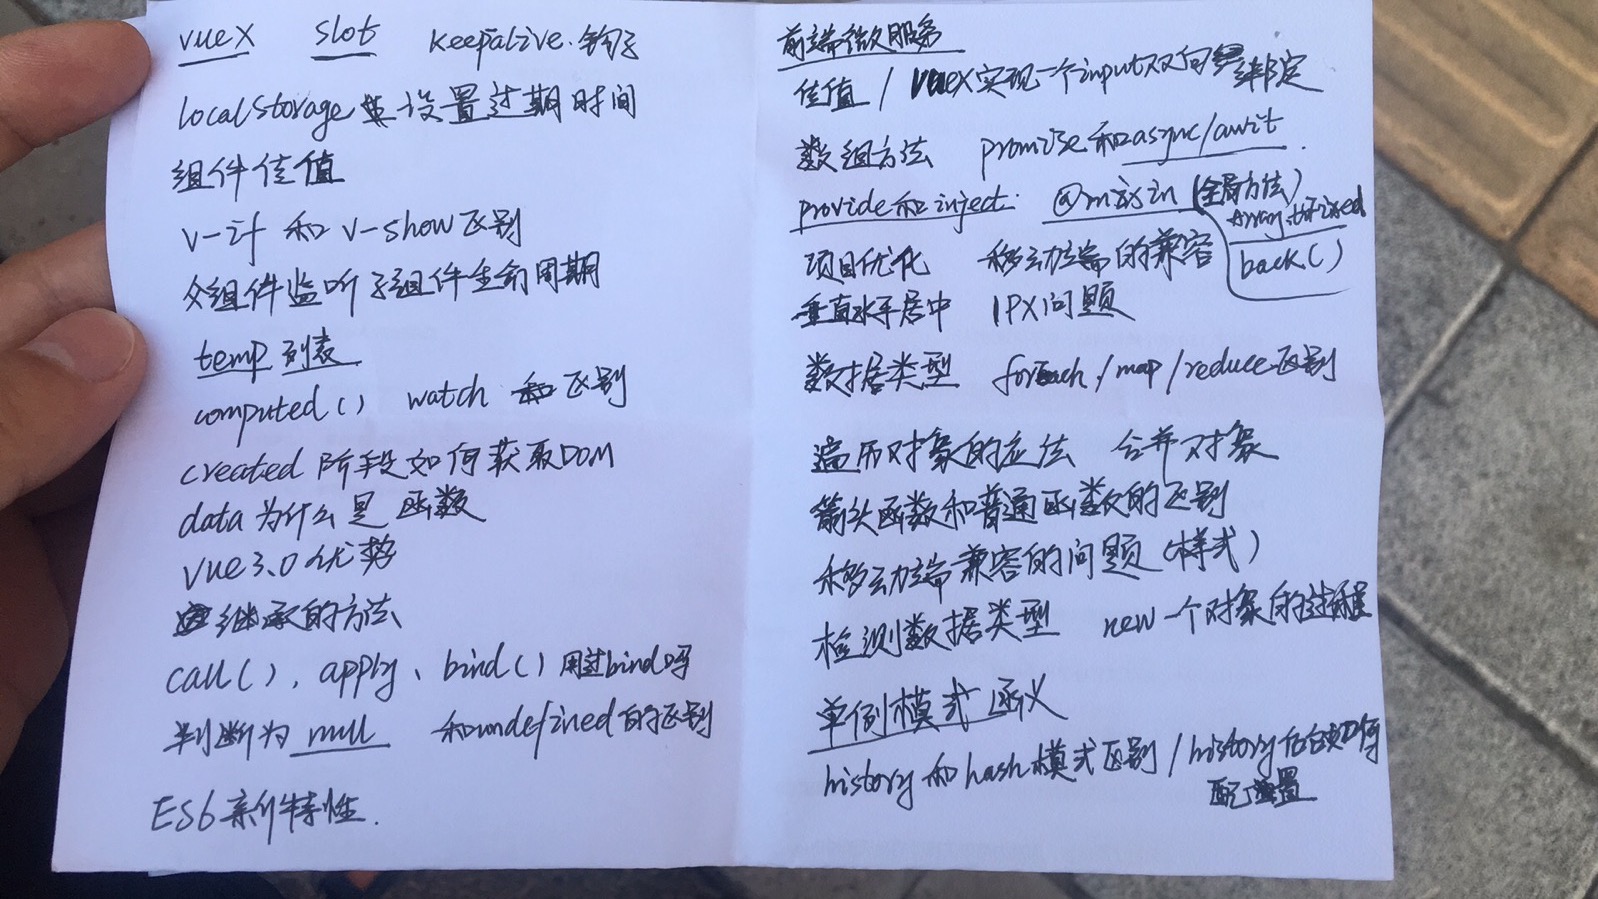 vuex slot keepalive.钩子
localStorage 设置过期时间
组件传值
v-if 和 v-show区别
父组件监听子组件生命周期
temp 列表
computed() watch 和区别
created 阶段如何获取DOM
data为什么是函数
vue3.0优势
继承的方法
call(), apply、bind() 用过bind吗
判断为 null 和undefined的区别
ES6新特性.
前端微服务
传值 / vuex实现一个input双向绑定
数组方法 promise和async/awit.
provide和inject. @mixin (全局方法)
back()
项目优化 移动端的兼容
垂直水平居中 IPX问题
数据类型 foreach/map/reduce区别
遍历对象的方法 合并对象
箭头函数和普通函数的区别
移动端兼容的问题(样式)
检测数据类型 new一个对象的过程
单例模式函义
history和hash模式区别 / history后台如何
配置